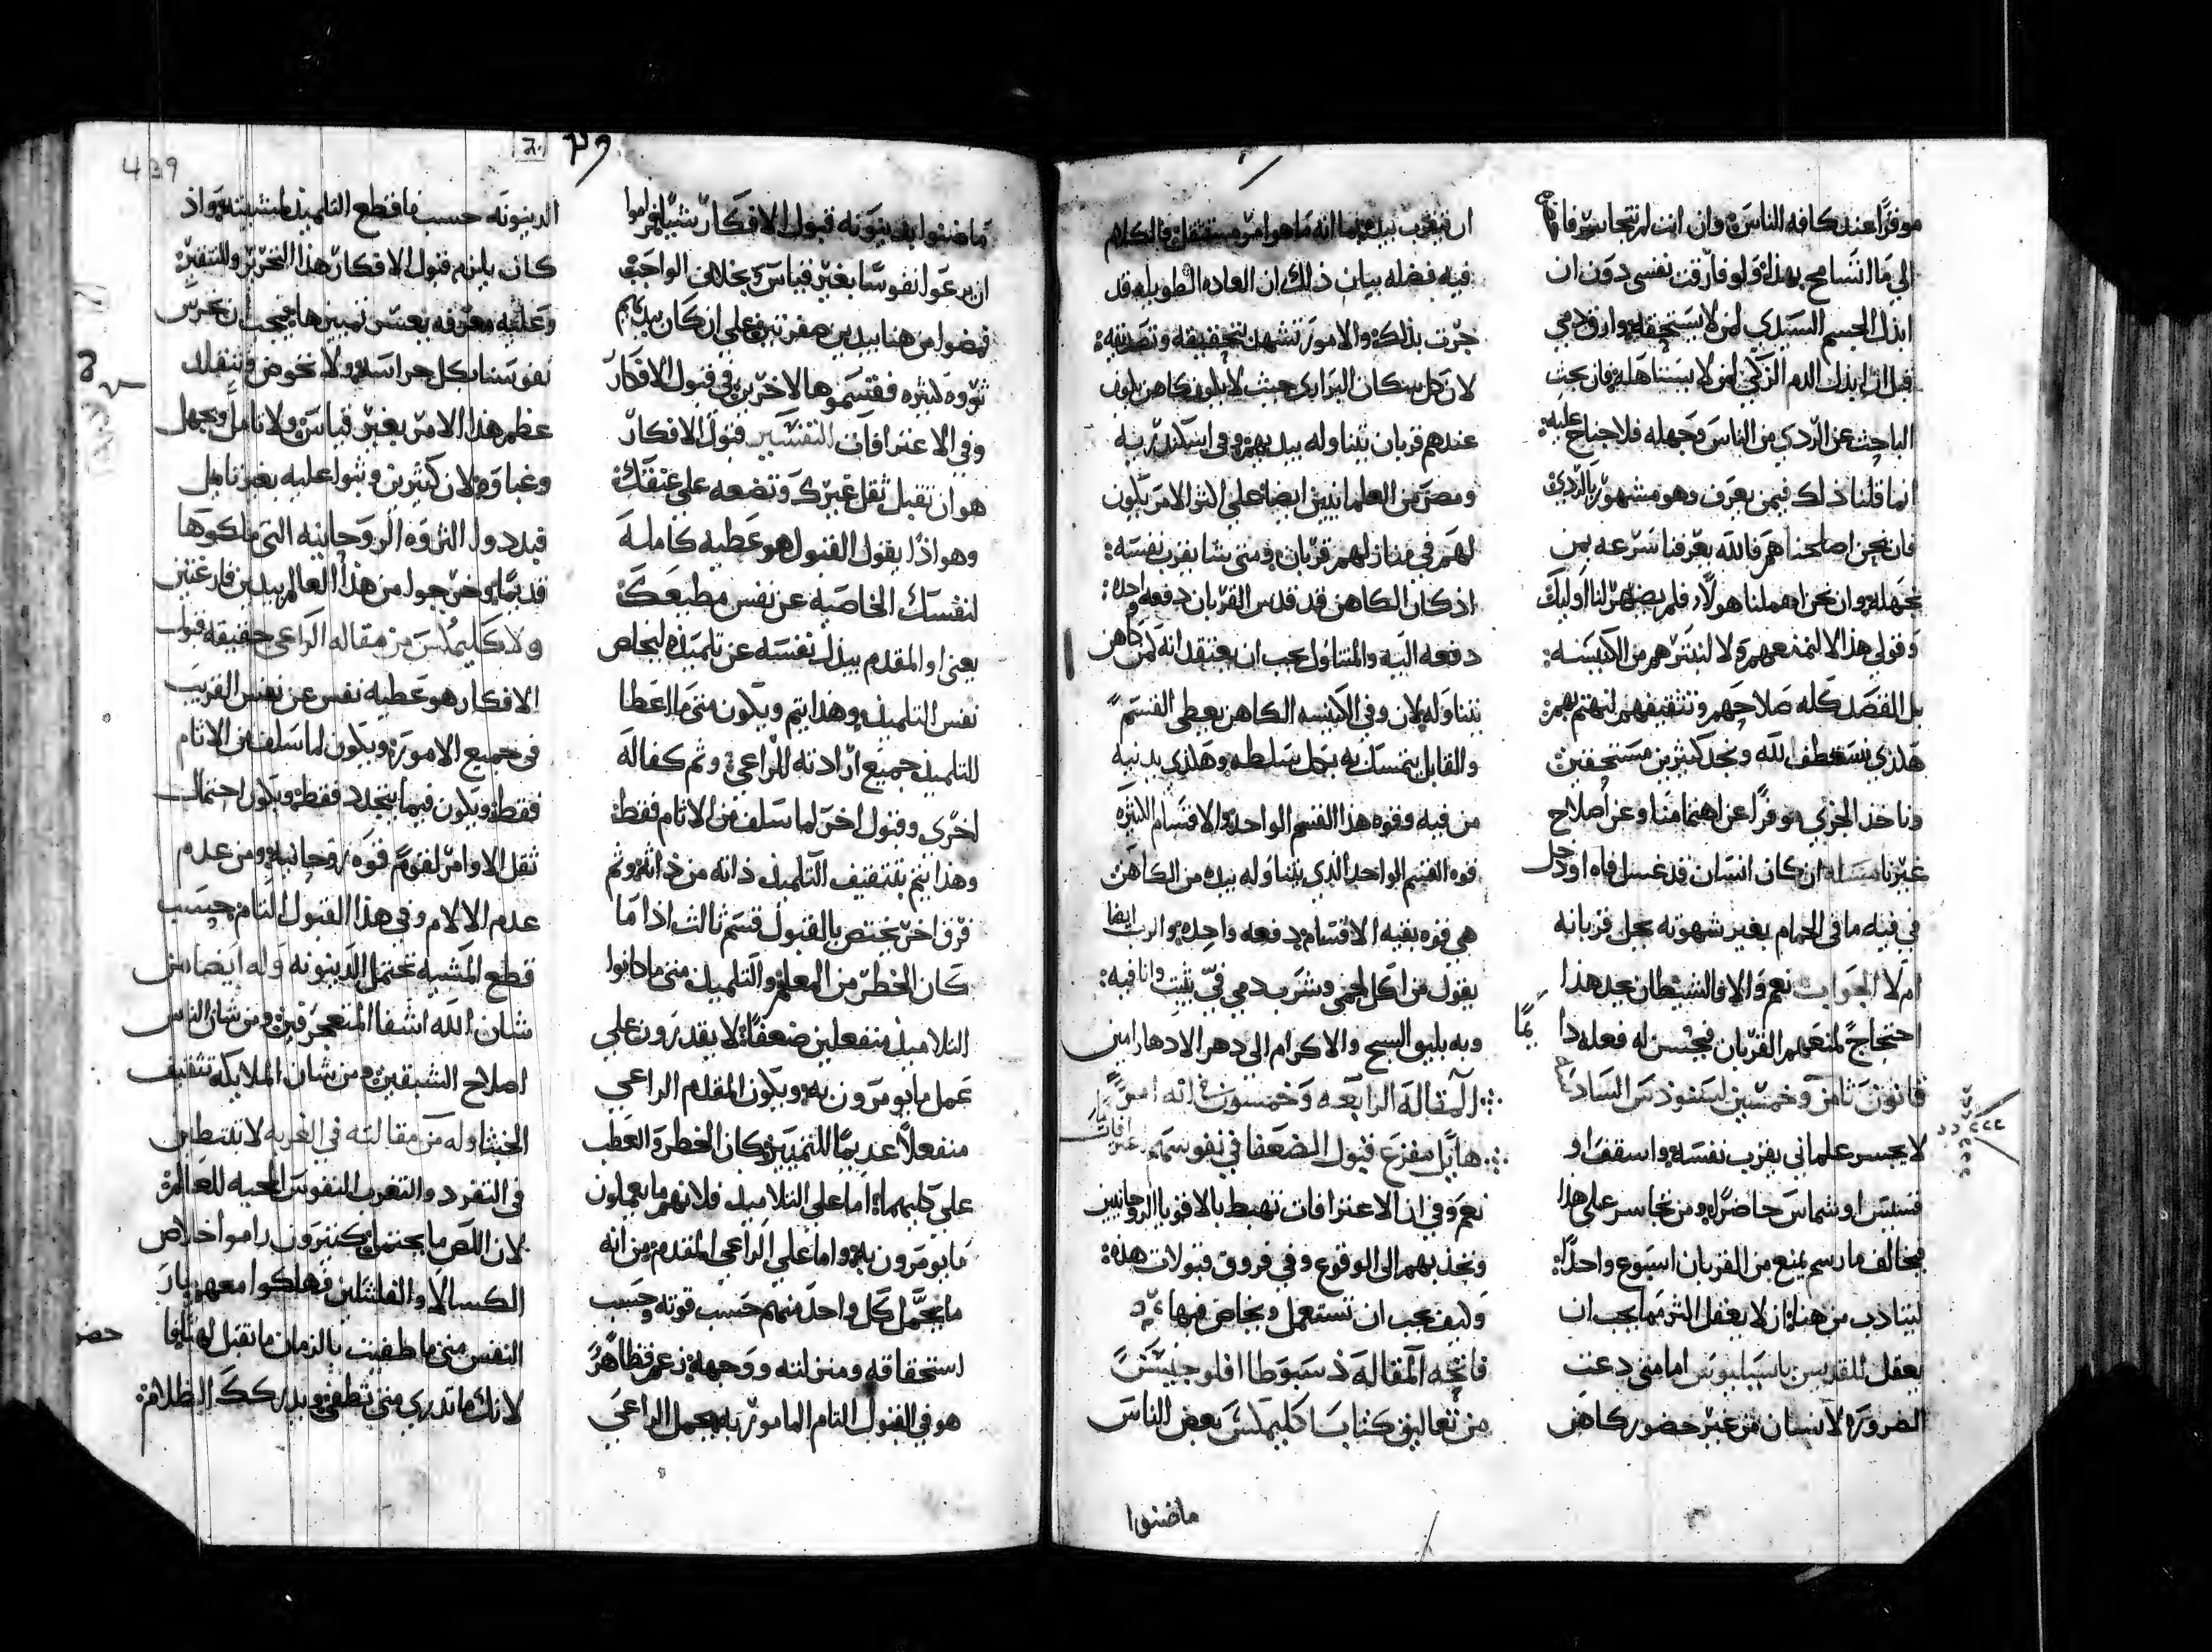 موفرًا عند كافة الناس وان انت لم تتجاسر فات
الي ما انسامح بهذا ولو فارقت نفسي دون ان
ابذل الجسم السيدي لمن لا يستحقه وارق دمي
قبل ان ابذل الدم الزكي لمن لا يستاهله فان بحث
الباحث عن الردي من الناس وجهله فلا جناح عليه
انما قلنا ذلك فيمن يعرف وهو مشهور بالردي
فان نحن اصلحنا هم فالله يعرفنا سرعه بمن
نجهله وان نحن اهملنا هولاء فلم يظهر لنا اوليك
وقولي هذا لا لنمنعهم ولا لنبترهم من الكنيسه
بل القصد كله صلاحهم وتثقيفهم لنهتم بهم
هكذي نستعطف الله ونجد كثيرين مستحقين
وناخذ الجزي موفرًا عن اهتمامنا وعن اصلاح
غيرنا مساله ان كان انسان قد غسل فاه او دخل
في فيه ما في الحمام بغير شهوته يحل قربانه
ام لا الجواب نعم والا فالشيطان يجد هذا
احتجاجًا لمنعهم القربان فيحسن له فعله دا
يمًا
قانون ثامن وخمسين لسنودس السادس
لا يجسر علماني يقرب نفسه واسقف او
قسيس او شماس حاضرا ومن تجاسر على هذا
فخالف ما رسم يمنع من القربان اسبوع واحدًا
ليتادب من هنا ان لا يعقل اكثر مما يجب ان
يعقل للقديس باسيليوس اما متى دعت
الضروره لانسان من غير حضور كاهن
ان يتقرب بيده فما انه ما هو امر مستقل فالكلام
فيه فضله بيان ذلك ان العاده الطويله قد
جرت بذلك والامور تشهد لتحقيقه وتصديقه
لان كل سكان البراري حيث لا يكون كاهن يكون
عندهم قربان يتناوله بيدهم وفي اسكندريه
ومصر من العلمانيين ايضا على اكثر الامر يكون
لهم في منازلهم قربان ومتى شا يقرب نفسه
اذ كان الكاهن قد قدس القربان دفعه واحده
دفعه اليه والمتناول يجب ان يعتقد انه من كاهن
يتناوله لان وفي الكنيسه الكاهن يعطي القسم
والقابل يتمسك به بكل سلطه وهكذي يدنيه
من فيه وقوه هذا القسم الواحد والاقسام الكثيره
قوه القسم الواحد الذي يتناوله بيده من الكاهن
هي قوه بقيه الاقسام دفعه واحده والرب ايضا
يقول من اكل لحمي وشرب دمي فيّ يثبت وانا فيه
وبه يليق السبح والاكرام الى دهر الادهار امين
المقاله الرابعه وخمسون
هايل مفزع قبول الضعفا في نفوسهم
نعم وفي ان الاعترافات تهبط بالاقويا الروحانيين
وتجذبهم الى الوقوع وفي فروق قبولات هذه
وكيف يجب ان تستعمل وبخاص فيها
فاتحه المقاله
من تعاليق كتاب اكليمكس بعض الناس
ماضنوا
439
ماضنوا بدينونه قبول الافكار شيئًا فراموا
ان يرعوا نفوسًا بغير قياس بخلاف الواجب
فمضوا من هنا بيدين صفرتين على ان كان بيدهم
ثروه كثيره فقسموها لاخرين في قبول الافكار
وفي الاعترافات التفسير قبول الافكار
هو ان تقبل ثقل غيرك وتضعه على عنقك
وهو اذًا يقول القبول هو عطيه كامله
لنفسك الخاصيه عن نفس مطيعك
يعني او المقدم يبذل نفسه عن تلميذه ليخلص
نفس التلميذ وهذا يتم ويكون متى ما اعطا
التلميذ جميع ارادته للراعي وثم كفاله
اخرى وقبول اخر لما سلف من الاثام فقط
وهذا يتم بتثقيف التلميذ ذاته من ذاته وثم
فرق اخر يختص بالقبول قسم ثالث اذا ما
كان الخطر من المعلم والتلميذ متى ما كانوا
التلاميذ منفعلين ضعفًا لا يقدرون علي
عمل ما يومرون به ويكون المقدم الراعي
منفعلًا عديمًا للتمييز كان الخطر والعطب
على كليهما اما على التلاميذ فلانهم ما يعملون
ما يومرون به واما على الراعي المقدم من انه
ما يحمل كل واحد منهم حسب قوته وحسب
استحقاقه ومنزلته ووجهه زعم فظاهر
هو في القبول التام المامور به يحمل الراعي
الدينونه حسب ما قطع التلميذ لمشيته واذ
كان يلزم قبول الافكار هذا التحرير والتنقير
وعليه معرفه يعسر تمييزها فيجب ان نحرس
نفوسنا بكل حراسه ولا نخوض ونتقلد
عظم هذا الامر بغير قياس ولا تامل وبجهل
وغباوه لان كثيرين وثبوا عليه بغير تامل
فبددوا الثروه الروحانيه التي ملكوها
قديمًا وخرجوا من هذا العالم بيدين فارغتين
ولاكليمكس من مقاله الراعي حقيقه قبول
الافكار هو عطيه نفس عن نفس القريب
في جميع الامور ويكون لما سلف من الاثام
فقط ويكون فيما يتجدد فقط ويكون احتمال
ثقل الاوامر لقوم قوه روحانيه ومن عدم
عدم الالام وفي هذا القبول التام حسب
قطع المشيه نحتمل الدينونه وله ايضا من
شان الله اشفا المنعجرفين ومن شان الناس
اصلاح الشبقين ومن شان الملايكه تثقيف
الخبثا وله من مقالته في الغربه لا تنبطين
في التفرد والتغرب النفوس المحبه للعالم
لان اللص ما يحتمل كثيرون راموا خلاص
الكسالا والفاشلين فهلكوا معهم بار
النفس متى ما طفيت بالزمان ما تقبل لهيبًا
لانك ما تدري متى تطفى ويدركك الظلام